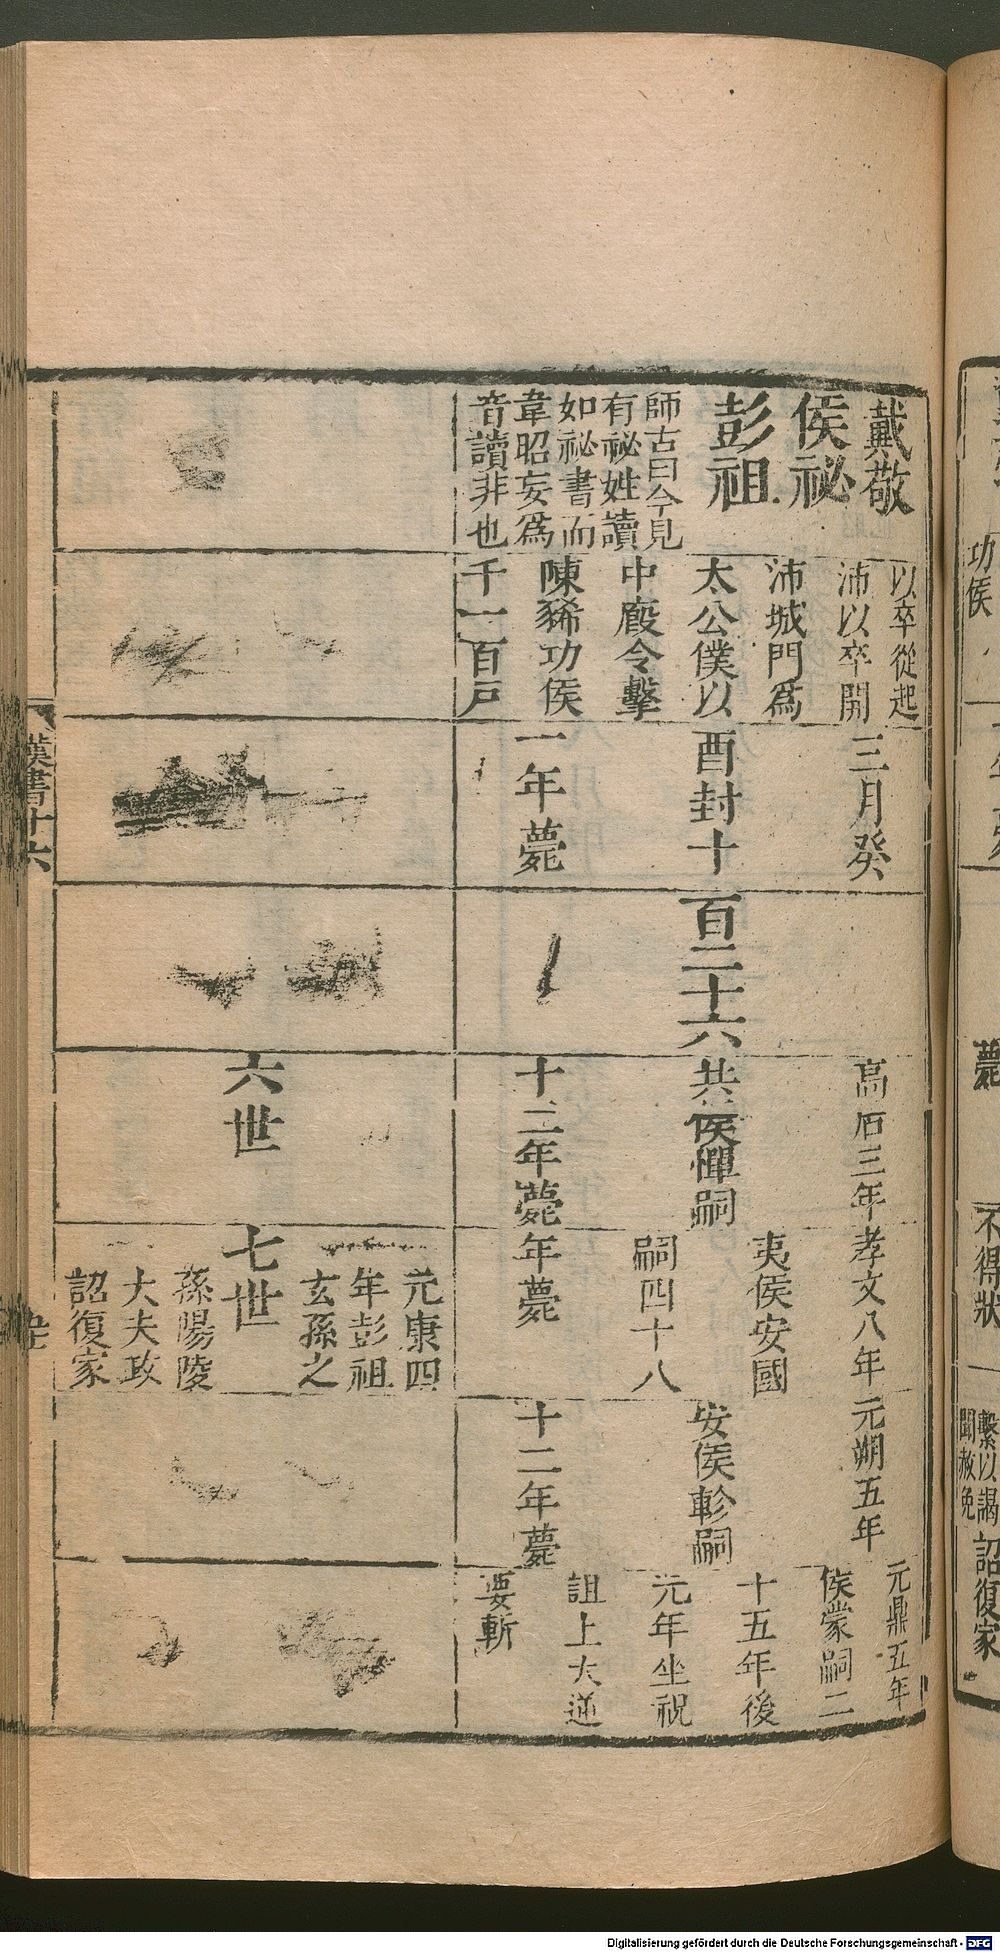 戴敬
侯祕
彭祖
師古曰今見
有祕姓讀
如祕書而
韋昭妄爲
音讀非也
以卒從起
沛以卒開
沛城門爲
太公僕以
中廄令擊
陳豨功侯
千一百戸
三月癸
酉封十
一年薨
百二十六
高后三年
共侯惲嗣
十二年薨
孝文八年
夷侯安國
嗣四十八
年薨
元朔五年
安侯軫嗣
十二年薨
元鼎五年
侯蒙嗣二
十五年後
元年坐祝
詛上大逆
要斬
六世
七世
元康四
年彭祖
玄孫之
孫陽陵
大夫政
詔復家
漢書十六
功侯
薨
不得狀
繫以謁
聞赦免
詔復家
Digitalisierung gefördert durch die Deutsche Forschungsgemeinschaft - DFG